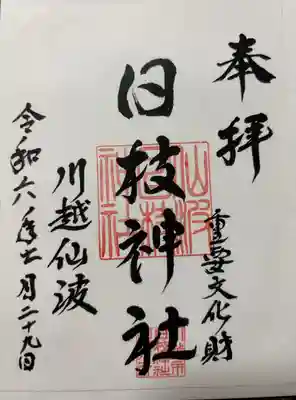 奉拝
重要文化財
日枝神社
川越仙波
令和六年七月二十九日